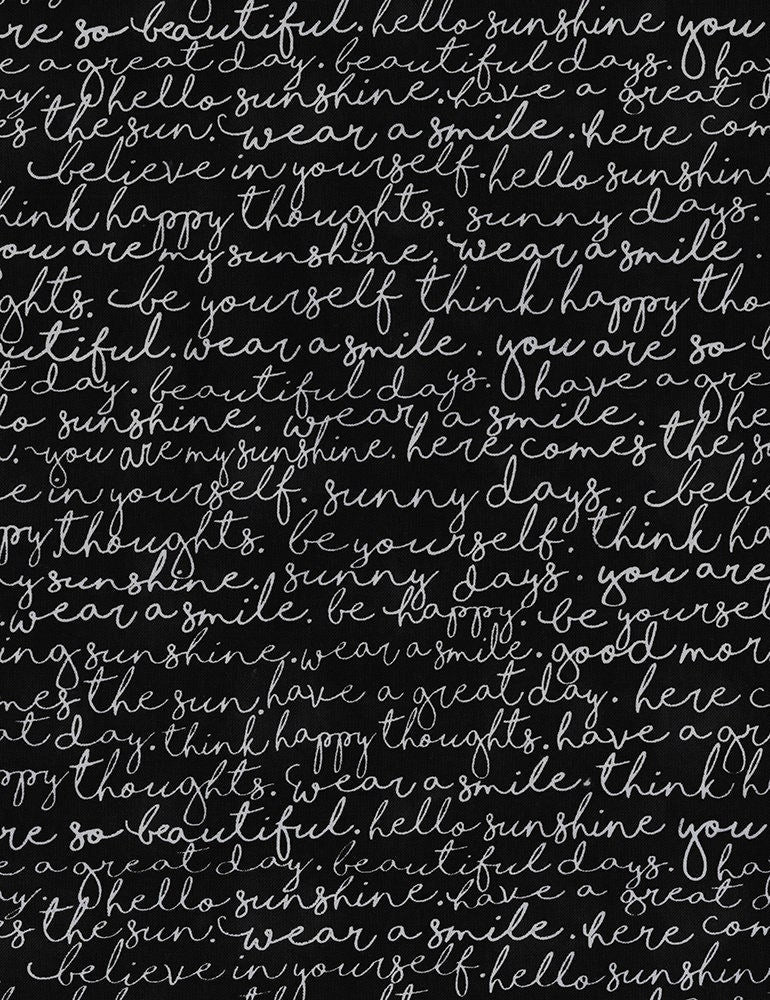 re so beautiful. hello sunshine you
e a great day. beautiful days. hav
ay. hello sunshine. have a great d
es the sun. wear a smile. here com
believe in yourself. hello sunshin
hink happy thoughts. sunny days.
ou are my sunshine. wear a smile.
ghts. be yourself think happy tho
utiful. wear a smile. you are so b
t day. beautiful days. have a gre
lo sunshine. wear a smile. he
. you are my sunshine. here comes the su
e in yourself. sunny days. beli
ppy thoughts. be yourself. think ha
y sunshine. sunny days. you are
. wear a smile. be happy. be yoursel
ing sunshine. wear a smile. good mor
mes the sun. have a great day. here c
at day. think happy thoughts. have a gr
ppy thoughts. wear a smile. think h
re so beautiful. hello sunshine you
e a great day. beautiful days. ha
ay. hello sunshine. have a great d
es the sun. wear a smile. here com
believe in yourself. hello sunshin